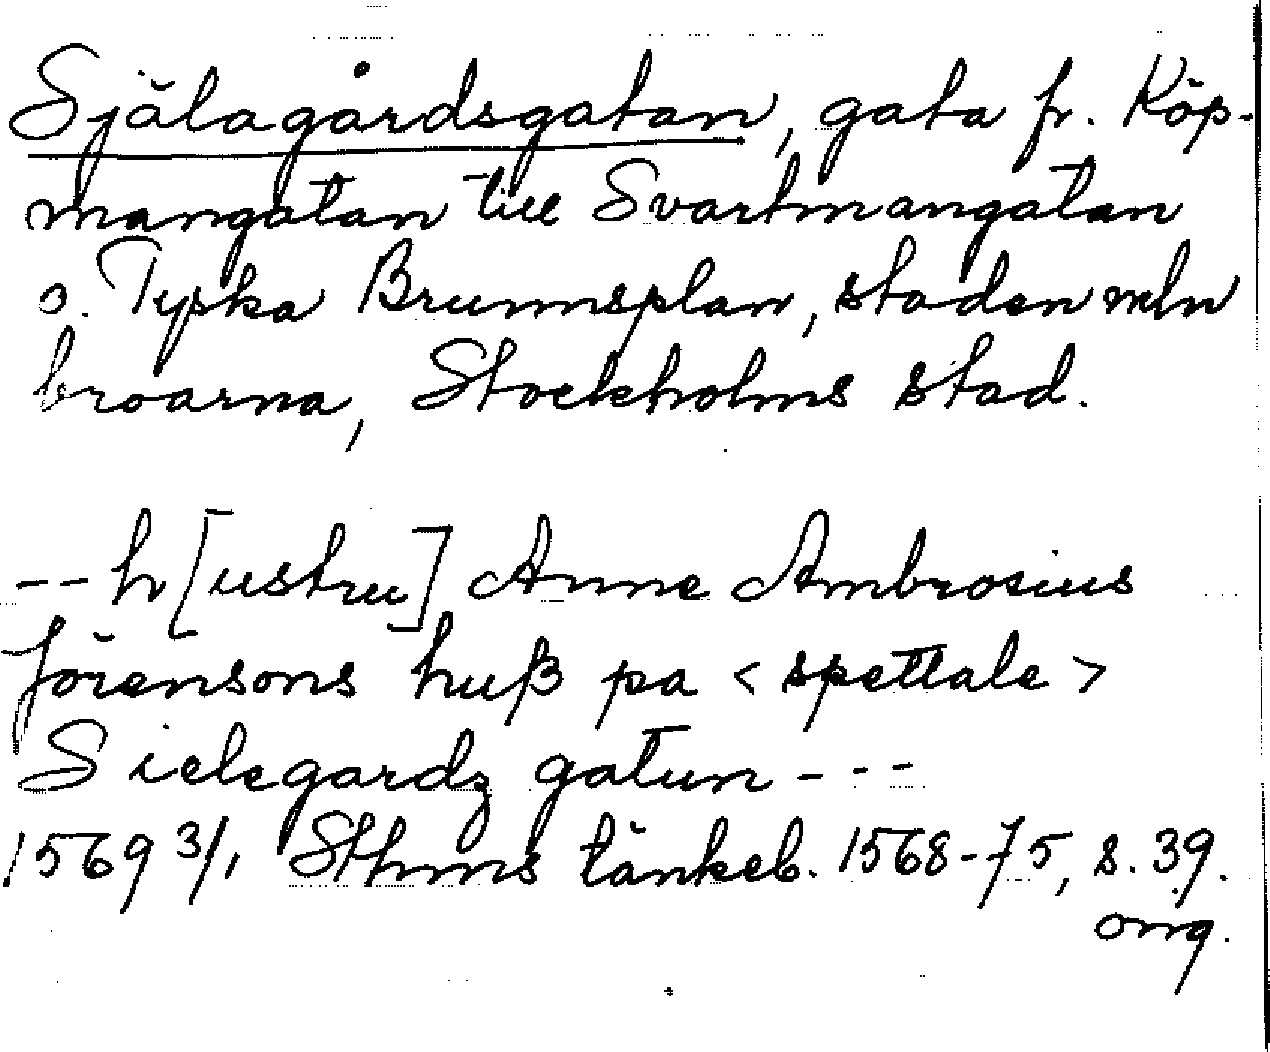 Själagårdsgatan, gata fr. Köp-
mangatan till Svartmangatan
o. Tyska Brunnsplan, staden mln
broarna, Stockholms stad.
-- h[ustru] Anne Ambrosius
Jörensons huß pa < spettale >
Sielegardz gatun ---
1569 3/1 Sthms tänkeb. 1568-75, s. 39.
orig.